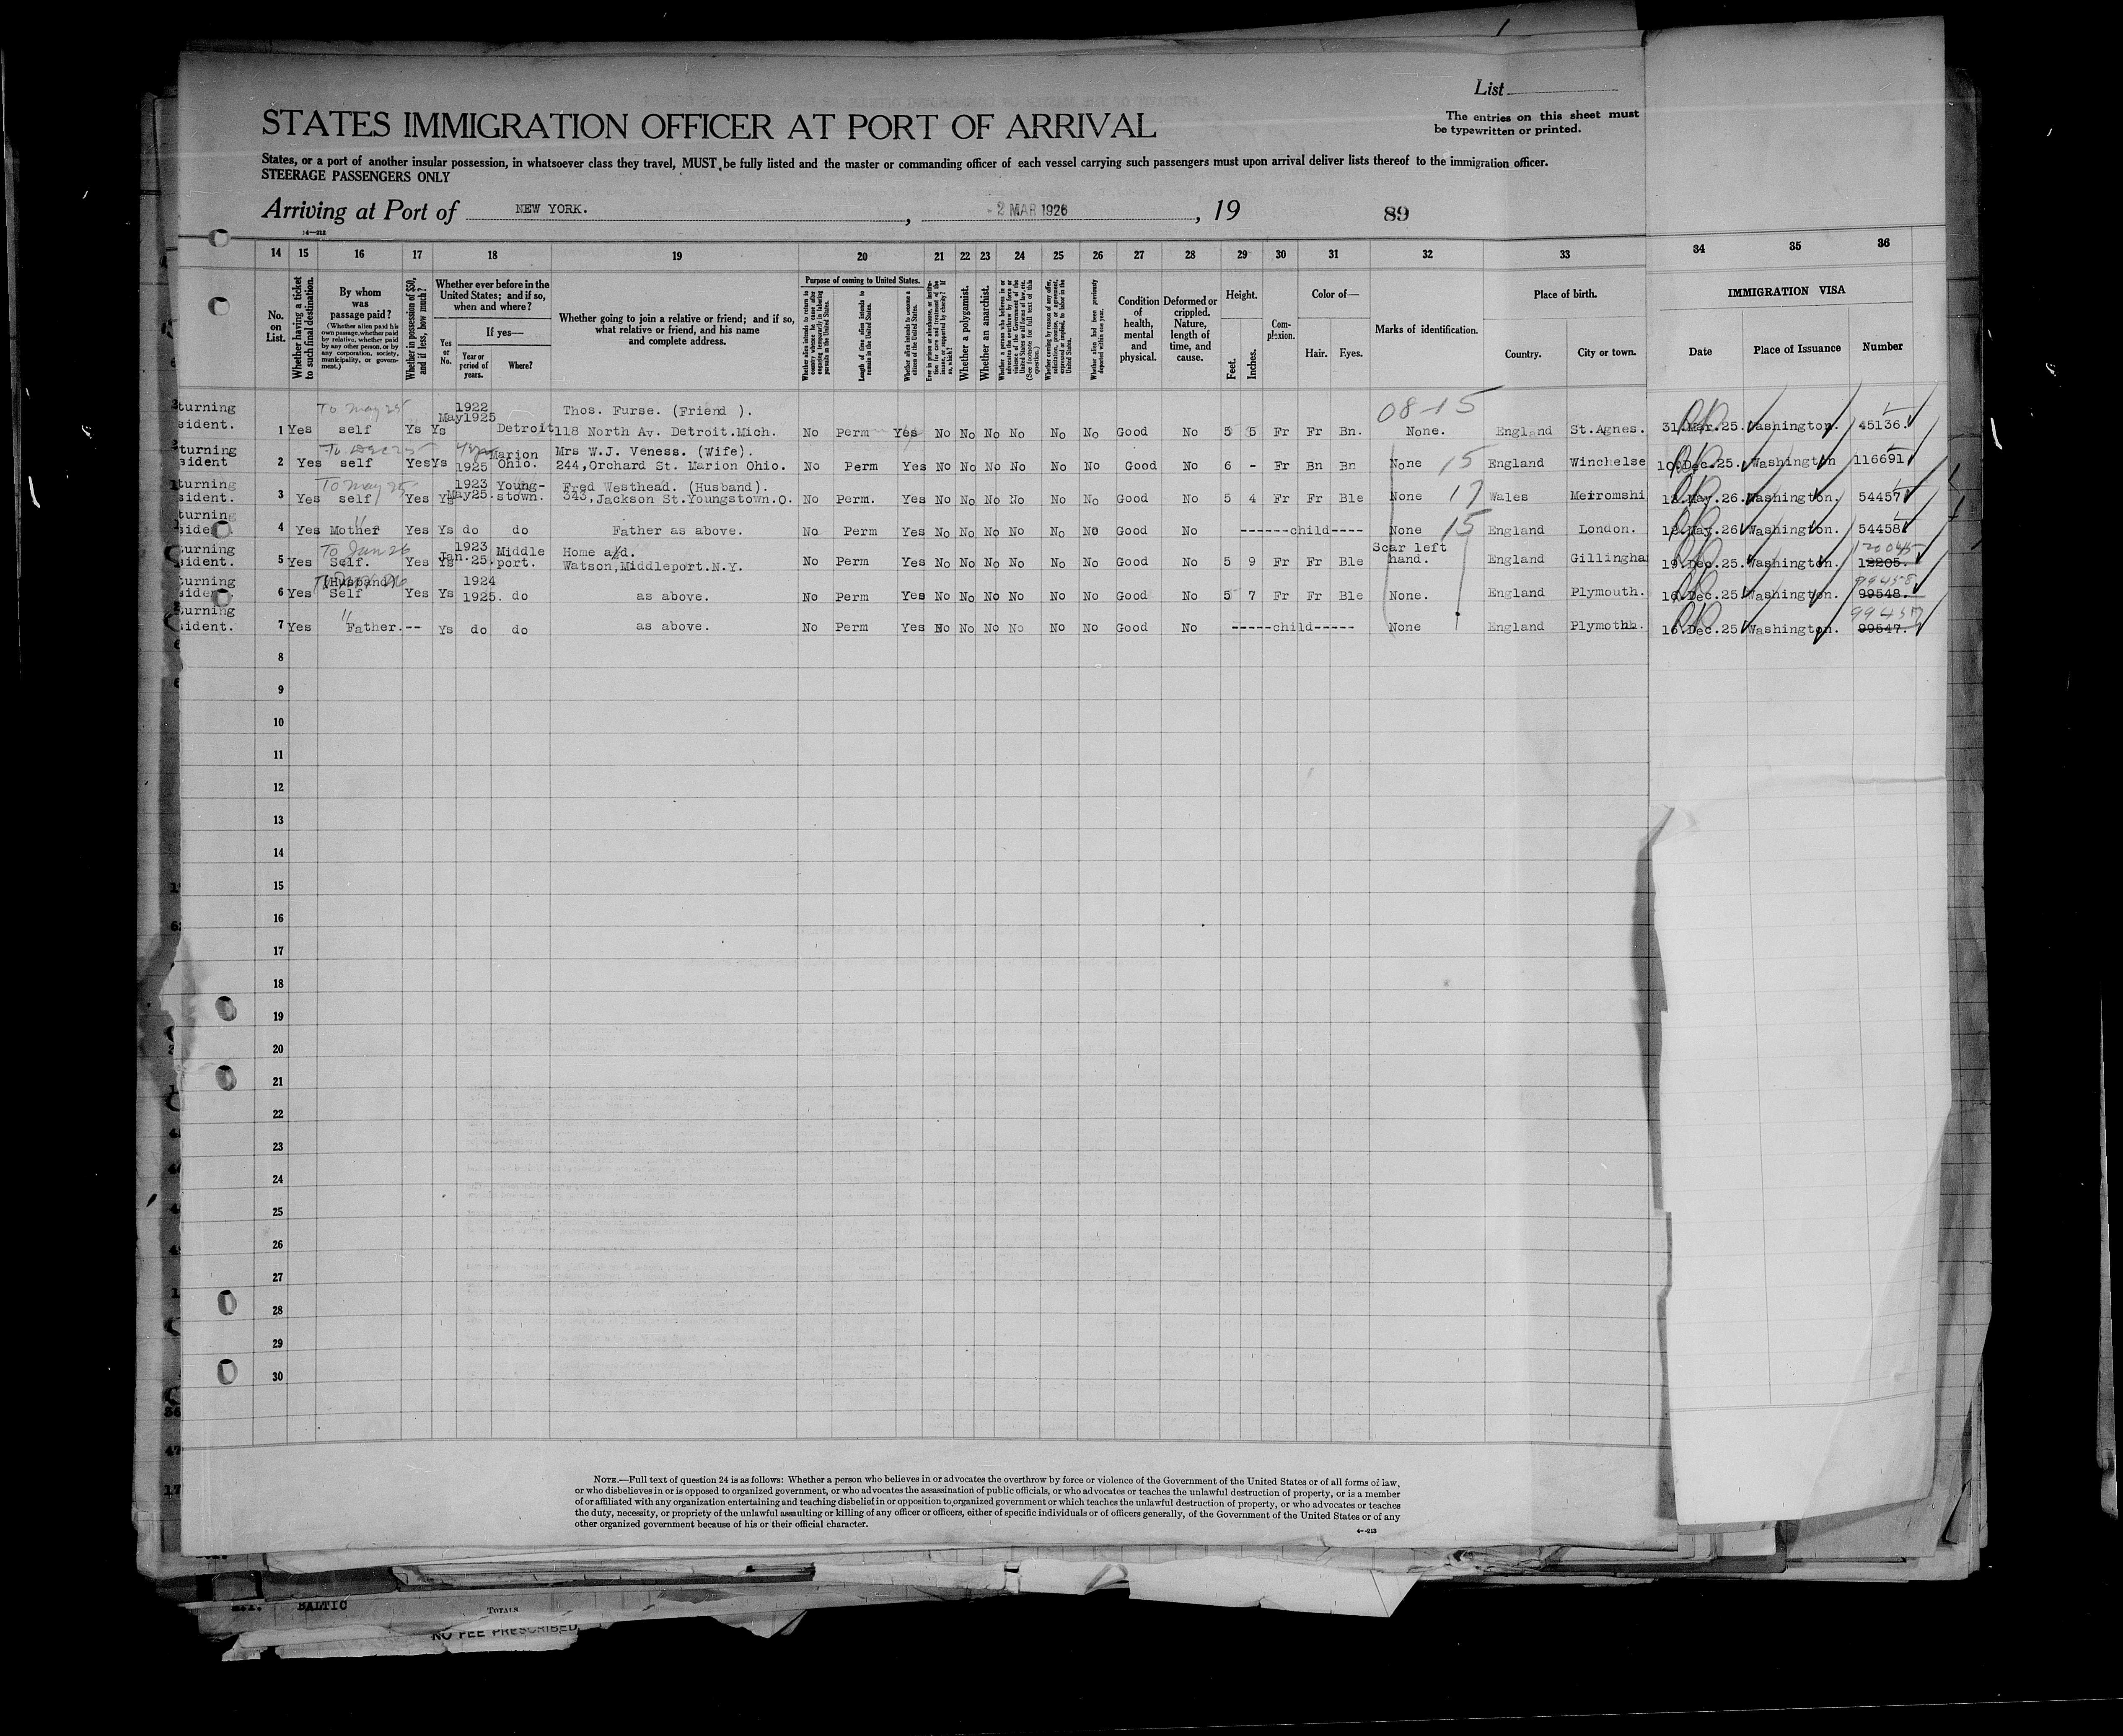 List
The entries on this sheet must
be typewritten or printed.
STATES IMMIGRATION OFFICER AT PORT OF ARRIVAL
States, or a port of another insular possession, in whatsoever class they travel, MUST be fully listed and the master or commanding officer of each vessel carrying such passengers must upon arrival deliver lists thereof to the immigration officer.
STEERAGE PASSENGERS ONLY
Arriving at Port of NEW YORK. , - 2 MAR 1926 , 19 89
14 15 16 17 18 19 20 21 22 23 24 25 26 27 28 29 30 31 32 33 34 35 36
No. on List.
Whether having a ticket to such final destination.
By whom was passage paid?
(Whether alien paid his own passage, whether paid by relative, whether paid by any other person, or by any corporation, society, municipality, or government.)
Whether in possession of $50, and if less, how much?
Whether ever before in the United States; and if so, when and where?
Yes or No.
If yes—
Year or period of years.
Where?
Whether going to join a relative or friend; and if so, what relative or friend, and his name and complete address.
Purpose of coming to United States.
Whether alien intends to return to country whence he came after engaging temporarily in laboring pursuits in the United States.
Length of time alien intends to remain in the United States.
Whether alien intends to become a citizen of the United States.
Whether a polygamist.
Whether an anarchist.
Condition of health, mental and physical.
Deformed or crippled. Nature, length of time, and cause.
Height.
Feet.
Inches.
Complexion.
Color of—
Hair.
Eyes.
Marks of identification.
Place of birth.
Country.
City or town.
IMMIGRATION VISA
Date
Place of Issuance
Number
08-15
turning sident. 1 Yes To May 25 self Ys Ys 1922 May1925 Detroit Thos. Furse. (Friend ). 118 North Av. Detroit.Mich. No Perm Yes No No No No No No Good No 5 5 Fr Fr Bn. None. England St.Agnes. 31.Mar.25. Washington. 45136.
turning sident 2 Yes To Dec 25 self Yes Ys 1925 Marion Ohio. Mrs W.J. Veness. (Wife). 244,Orchard St. Marion Ohio. No Perm Yes No No No No No No Good No 6 - Fr Bn Bn None 15 England Winchelse 10.Dec.25. Washington 116691
turning sident. 3 Yes To May 25 self Yes Ys 1923 May25. Young-stown. Fred Westhead. (Husband). 343,Jackson St.Youngstown.O. No Perm. Yes No No No No No No Good No 5 4 Fr Fr Ble None 17 Wales Meiromshi 12.May.26. Washington. 54457
turning side 4 Yes Mother Yes Ys do do Father as above. No Perm Yes No No No No No No Good No ------child---- None 15 England London. 12.May.26 Washington. 54458
turning ident. 5 Yes To Jan 26 Self. Yes Ys 1923 Jan.25. Middle port. Home a/d. Watson,Middleport.N.Y. No Perm Yes No No No No No No Good No 5 9 Fr Fr Ble Scar left hand. England Gillingha 19.Dec.25. Washington. 12205. 120045
turning side 6 Yes (Husband) Self Yes Ys 1924 1925. do as above. No Perm Yes No No No No No No Good No 5 7 Fr Fr Ble None. England Plymouth. 16.Dec.25 Washington. 99548. 99458
turning ident. 7 Yes " Father. -- Ys do do as above. No Perm Yes No No No No No No Good No -----child----- None England Plymothh. 16.Dec.25 Washington. 99547. 99457
8
9
10
11
12
13
14
15
16
17
18
19
20
21
22
23
24
25
26
27
28
29
30
NOTE.—Full text of question 24 is as follows: Whether a person who believes in or advocates the overthrow by force or violence of the Government of the United States or of all forms of law,
or who disbelieves in or is opposed to organized government, or who advocates the assassination of public officials, or who advocates or teaches the unlawful destruction of property, or is a member
of or affiliated with any organization entertaining and teaching disbelief in or opposition to organized government or which teaches the unlawful destruction of property, or who advocates or teaches
the duty, necessity, or propriety of the unlawful assaulting or killing of any officer or officers, either of specific individuals or of officers generally, of the Government of the United States or of any
other organized government because of his or their official character.
BALTIC
TOTALS
NO FEE PRESCRIBED